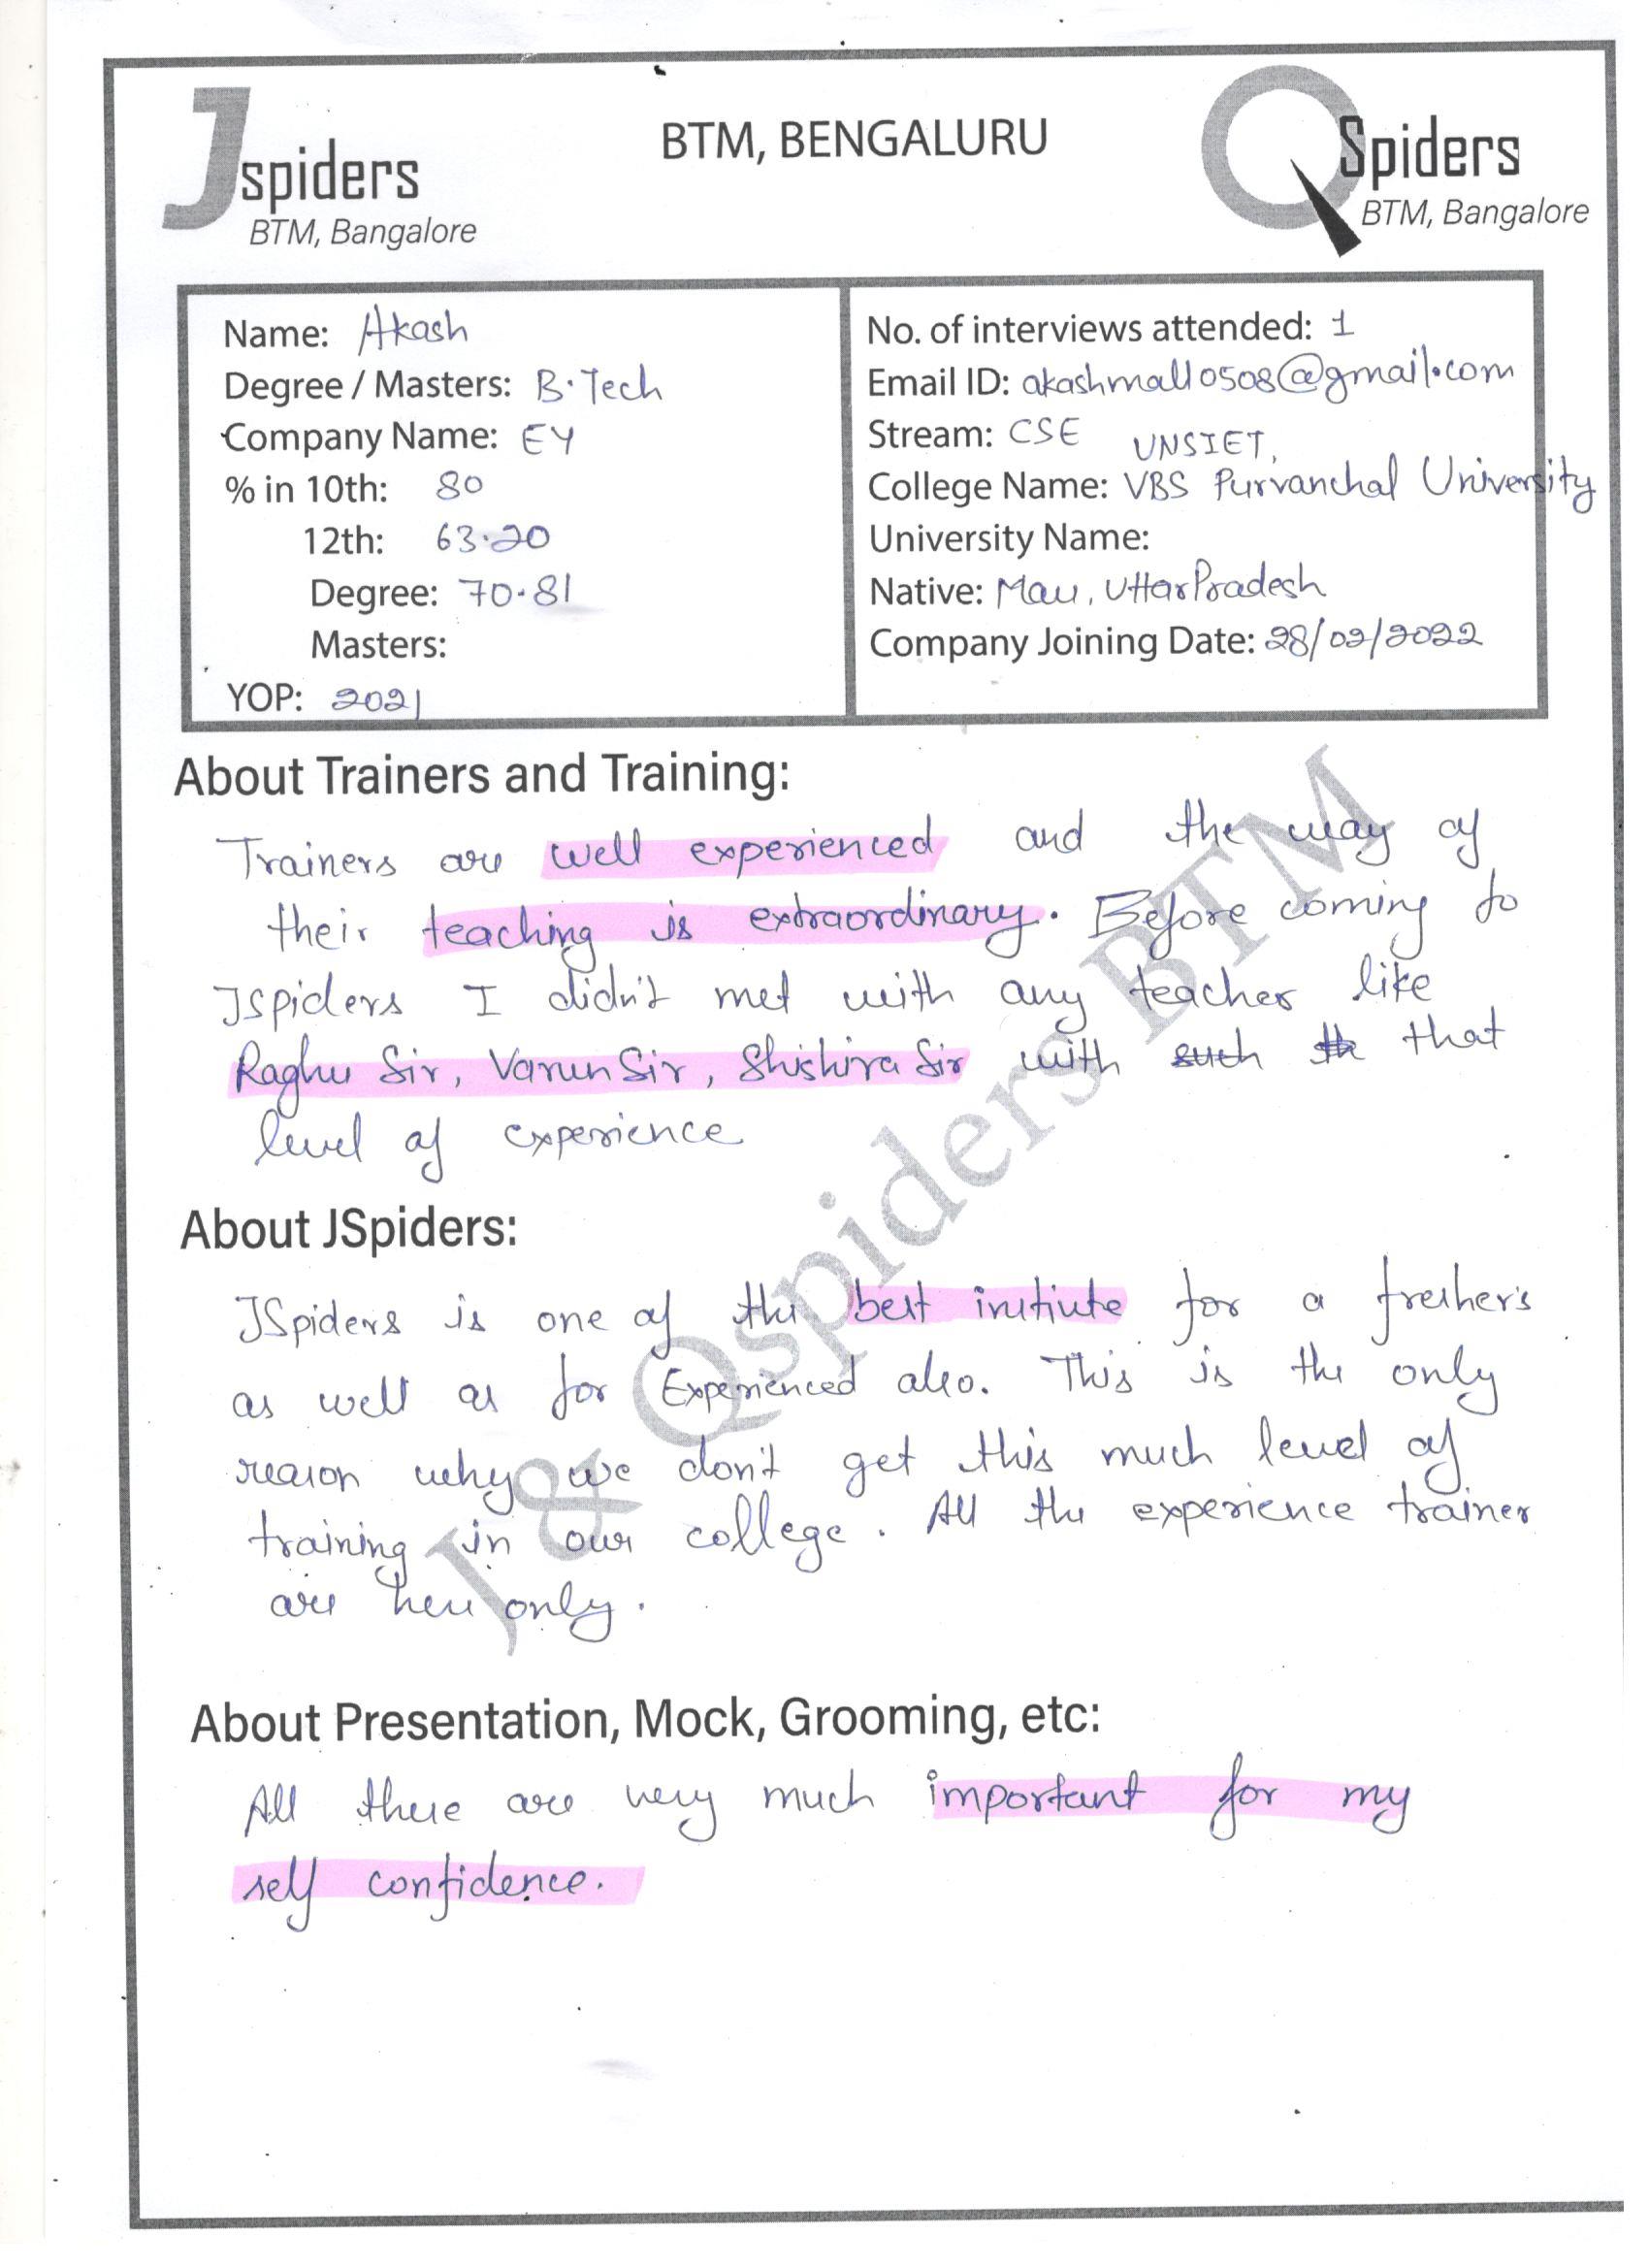 Jspiders
BTM, Bangalore
BTM, BENGALURU
QSpiders
BTM, Bangalore
Name: Akash
Degree / Masters: B.Tech
Company Name: EY
% in 10th: 80
12th: 63.20
Degree: 70.81
Masters:
YOP: 2021
No. of interviews attended: 1
Email ID: akashmall0508@gmail.com
Stream: CSE
UNSIET,
College Name: VBS Purvanchal University
University Name:
Native: Mau, Uttar Pradesh
Company Joining Date: 28/02/2022
About Trainers and Training:
Trainers are well experienced and the way of
their teaching is extraordinary. Before coming to
Jspiders I didn't met with any teacher like
Raghu Sir, Varun Sir, Shishira Sir with such th that
level of experience
About JSpiders:
JSpiders is one of the best insitiute for a fresher's
as well as for Experienced also. This is the only
reason why we don't get this much level of
training in our college. All the experience trainer
are here only.
About Presentation, Mock, Grooming, etc:
All these are very much important for my
self confidence.
J & Qspiders BTM